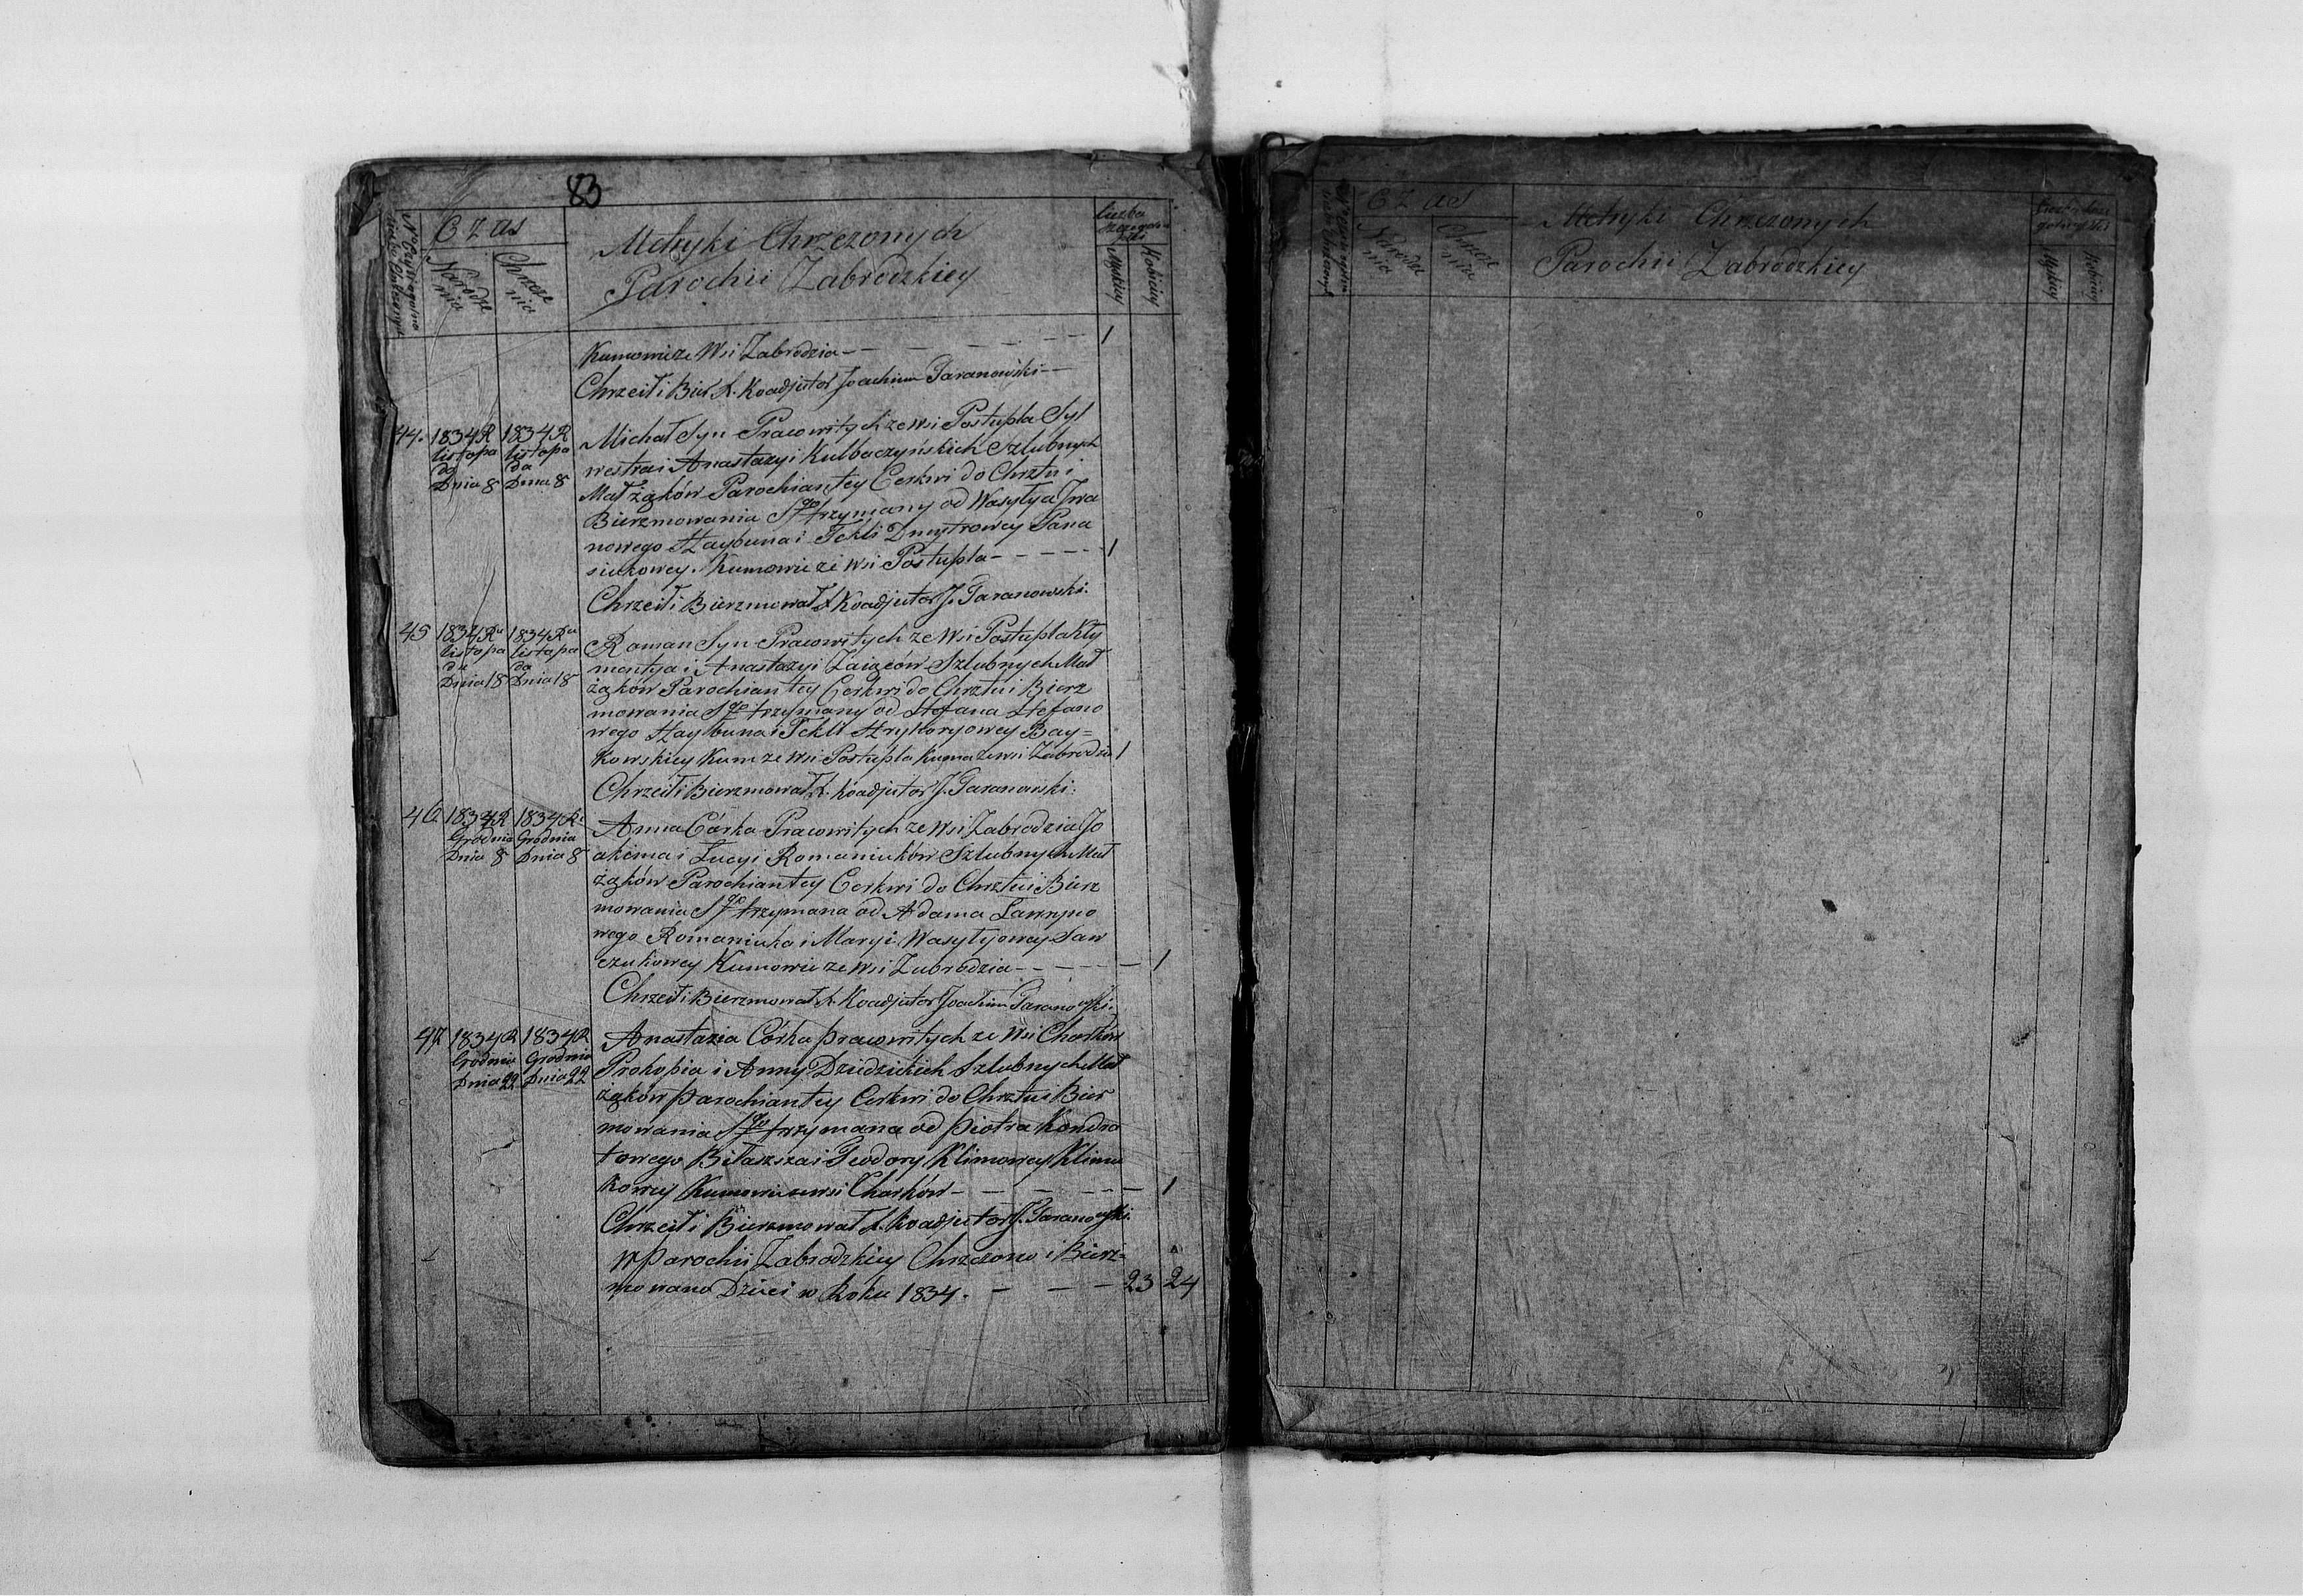 83
Czas
Narodze
nia
Chrzce
nia
Metryki Chrzczonych
Parochii Zabrodzkiey
liczba
Męskiey
Kobiéey
Kumowie ze Wsi Zabrodzia - - - - - - 1
Chrzcił i Bier X. Koadjutor Joachim Taranowski - -
44. 1834 R 1834 R
listopa listopa
da da
Dnia 8 Dnia 8
Michał Syn Pracowitych ze wsi Postupla Syl
westra i Anastazyi Kulbaczyńskich Szlubnych
Małżąków Parochian tey Cerkwi do Chrztu i
Bierzmowania Sgo trzymany od Wasyłya Iwa
nowego Szaybuna i Tekli Dmytrowey Pana
siukowey. Kumowie ze wsi Postupla - - - - - 1
Chrzcił i Bierzmował X Koadjutor J. Taranowski.
45 1834 Ru 1834 Ru
listopa listopa
da da
Dnia 18 Dnia 18
Roman Syn Pracowitych ze Wsi Postupla Kły
mentya i Anastazyi Zaiąców Szlubnych Mał
żąków Parochian tey Cerkwi do Chrztu i Bierz
mowania Sgo trzymany od Stefana Stefano
wego Szaybuna i Tekli Hryhoryowey Bay=
kowskiey Kum ze Wsi Postupla Kuma ze wsi Zabrodzia 1
Chrzcił i Bierzmował X. Koadjutor J. Taranowski.
46 1834 R 1834 R
Grodnia Grodnia
Dnia 8 Dnia 8
Anna Córka Pracowitych ze Wsi Zabrodzia Jo
akima i Łucyi Romaniuków Szlubnych Mał
żąków Parochian tey Cerkwi do Chrztu i Bierz
mowania Sgo trzymana od Adama Ławryno
wego Romaniuka i Maryi Wasyłyowey Saw
czukowey Kumowie ze wsi Zabrodzia - - - - - 1
Chrzcił i Bierzmował X. Koadjutor Joachim Taranowski.
47 1834 R 1834 R
Grodnia Grodnia
Dnia 22 Dnia 22
Anastazia Córka pracowitych ze Wsi Charków
Prokopia i Anny Dziedzickich Szlubnych Mał
żąków parochian tey Cerkwi do Chrztu i Bier
mowania Sgo trzymana od piotra Kondra
towego Biłaszsza i Teodory Klimowey Klimu
kowey Kumowie ze wsi Charków - - - - - 1
Chrzcił i Bierzmował X. Koadjutor J. Taranowski.
w parochii Zabrodzkiey Chrzczono i Bierz=
mowano Dzieci w Roku 1834. - - - 23 24
Czas
Narodze
nia
Chrzce
nia
Metryki Chrzczonych
Parochii Zabrodzkiey
Męskiey
Kobiéey